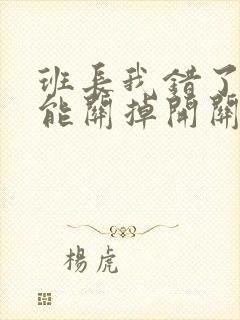 班長我錯了
能關掉開關
楊虎